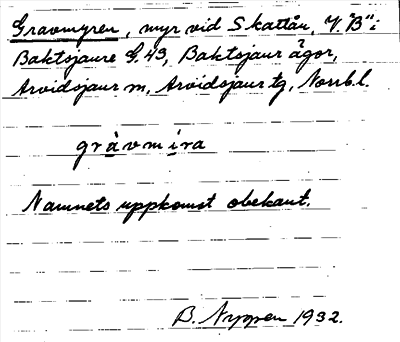 Gravmyren, myr vid Skatlån, V. "B" i
Baktsjaure G. 43, Baktsjaur ägor,
Arvidsjaur m, Arvidsjaur tg, Norrb.l.
gràvmíra
Namnets uppkomst obekant.
B. Nygren 1932.